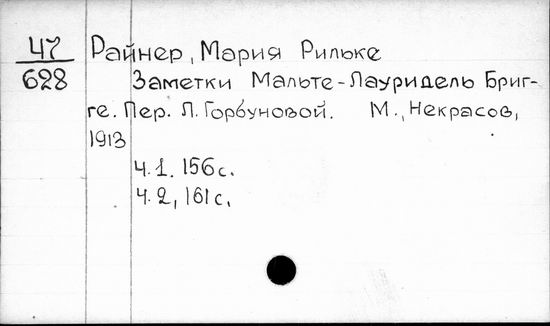 47
628
Райнер, Мария Рильке
Заметки Мальте-Лауридель Бриг-
ге. Пер. Л. Горбуновой. М., Некрасов,
1913
Ч. 1. 156 с.
Ч. 2, 161 с.